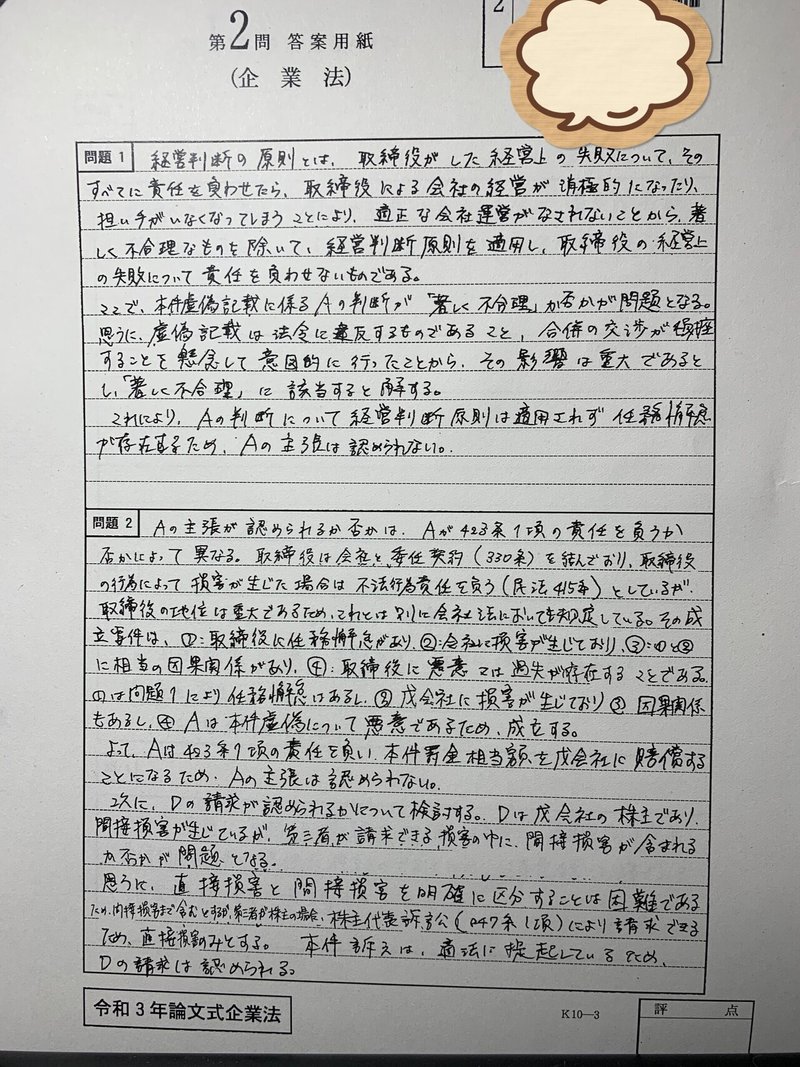 2
第2問 答案用紙
(企業法)
問題1 経営判断の原則とは、取締役がした経営上の失敗について、その
すべてに責任を負わせたら、取締役による会社の経営が消極的になったり、
担い手がいなくなってしまうことにより、適正な会社運営がなされないことから、著
しく不合理なものを除いて、経営判断原則を適用し、取締役の経営上
の失敗について責任を負わせないものである。
ここで、本件虚偽記載に係るAの判断が「著しく不合理」か否かが問題となる。
思うに、虚偽記載は法令に違反するものであること、合併の交渉が
することを懸念して意図的に行ったことから、その影響は重大であると
し、「著しく不合理」に該当すると解する。
これにより、Aの判断について経営判断原則は適用されず任務懈怠
が存在するため、Aの主張は認められない。
問題2 Aの主張が認められるか否かは、Aが423条1項の責任を負うか
否かによって異なる。取締役は会社と委任契約(330条)を結んでおり、取締役
の行為によって損害が生じた場合は不法行為責任を負う(民法415条)としているが、
取締役の地位は重大であるため、これとは別に会社法においても規定している。その成
立要件は、①:取締役に任務懈怠があり、②:会社に損害が生じており、③:①と②
に相当の因果関係があり、④:取締役に悪意又は過失が存在することである。
①は問題1により任務懈怠はあるし、②戊会社に損害が生じており③因果関係
もあるし、④Aは本件虚偽について悪意であるため、成立する。
よって、Aは423条1項の責任を負い、本件罰金相当額を戊会社に賠償する
ことになるため、Aの主張は認められない。
次に、Dの請求が認められるかについて検討する。Dは戊会社の株主であり、
間接損害が生じているが、第三者が請求できる損害の中に、間接損害が含まれる
か否かが問題となる。
思うに、直接損害と間接損害を明確に区分することは困難である
ため、間接損害まで含むとするが、第三者が株主の場合、株主代表訴訟(847条1項)により請求できる
ため、直接損害のみとする。 本件訴えは、適法に提起しているため、
Dの請求は認められる。
令和3年論文式企業法
K10―3
評 点